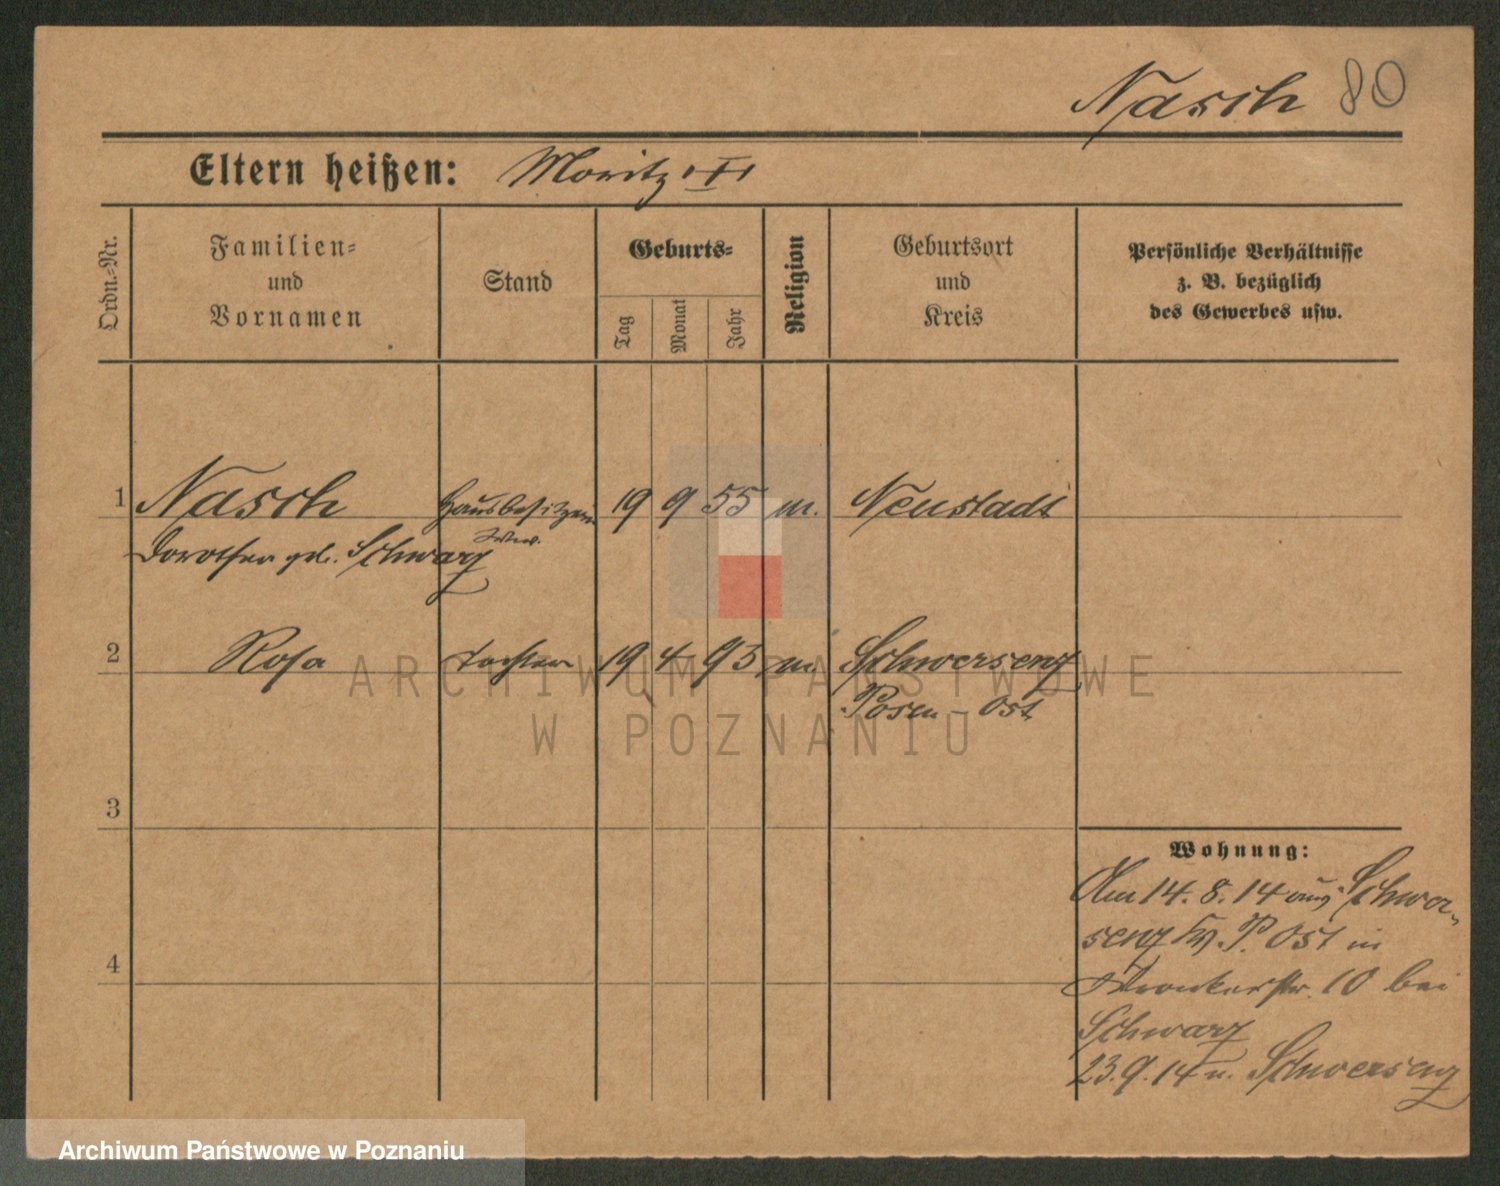 Nasch 80
Eltern heißen: Moritz
Ordn.=Nr.
Familien=
und
Vornamen
Stand
Geburts=
Tag
Monat
Jahr
Religion
Geburtsort
und
Kreis
Persönliche Verhältnisse
z. B. bezüglich
des Gewerbes usw.
1 Nasch Hausbesitzerin 19 9 55 m. Neustadt
Dorothea geb. Schwarz
2 Rosa Tochter 19 4 93 m. Schwersenz
Posen-Ost
3
4
Wohnung:
Am 14.8.14 aus Schwer-
senz Kr. P. Ost in
Kronkerstr. 10 bei
Schwarz
23.9.14 n. Schwersenz
ARCHIWUM PAŃSTWOWE
W POZNANIU
Archiwum Państwowe w Poznaniu